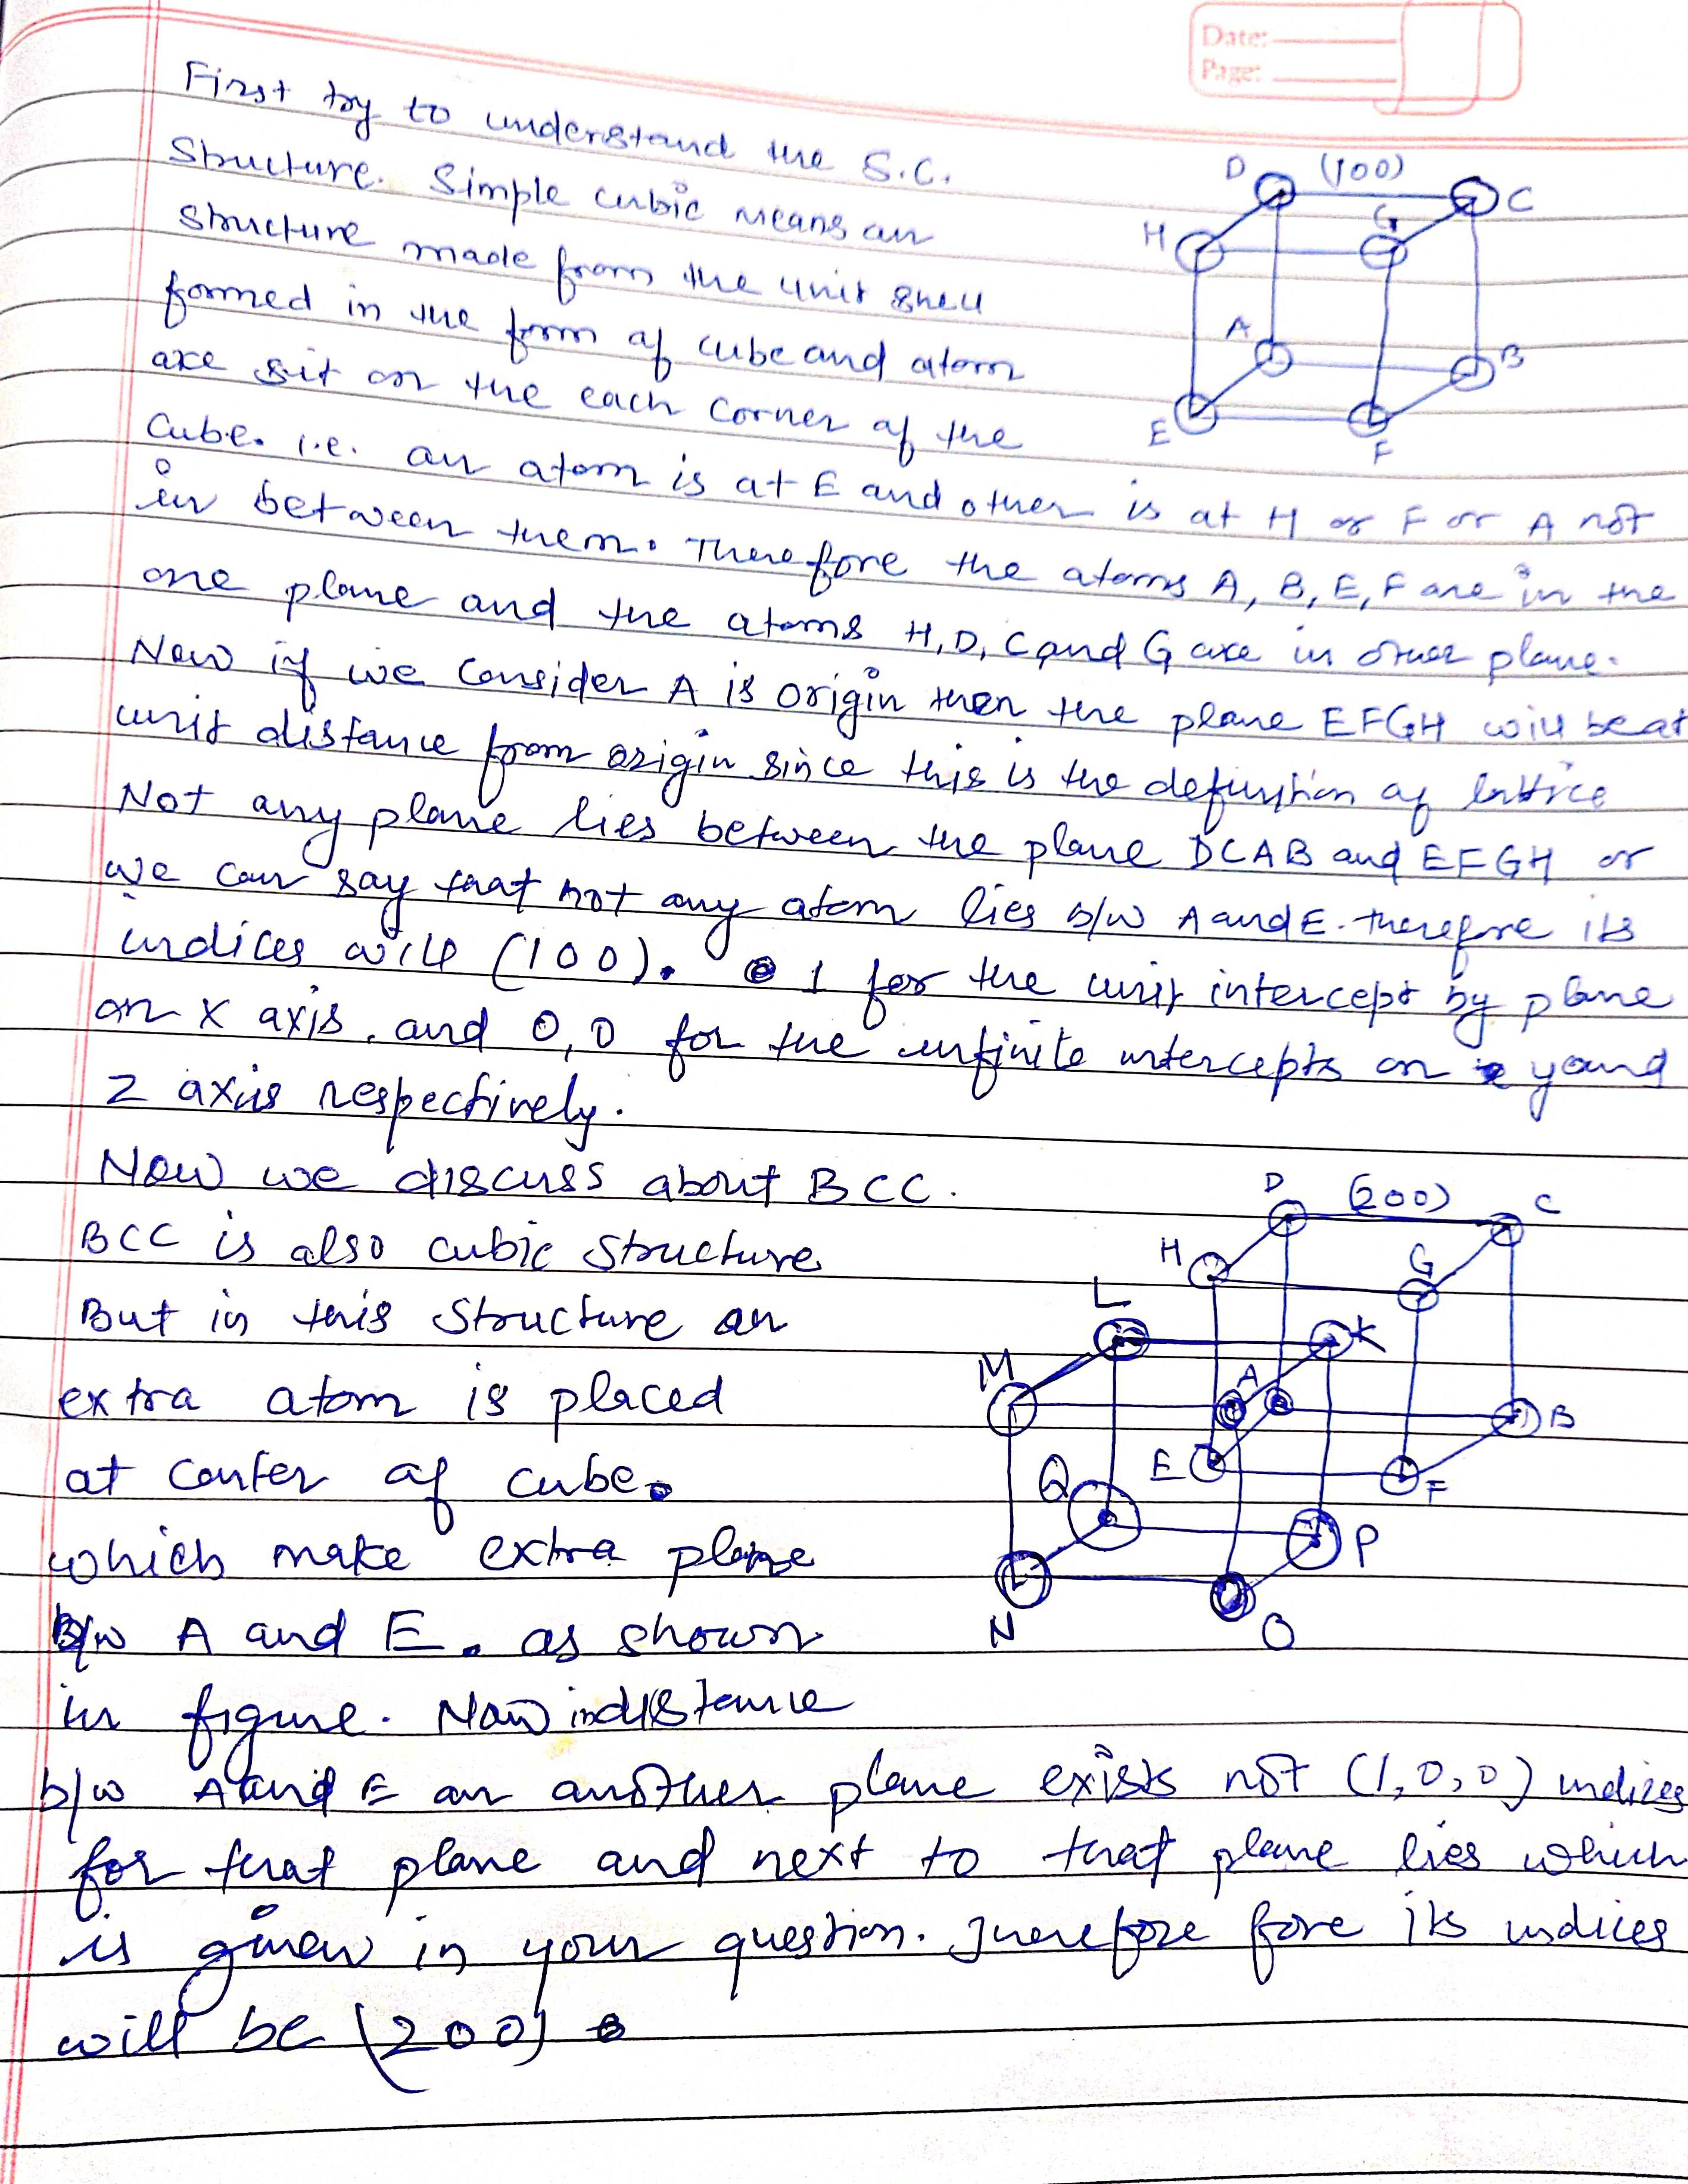 Date:
Page:
First try to understand the S.C.
Structure. Simple cubic means an
structure made from the unit shell
formed in the form of cube and atom
are sit on the each corner of the
Cube. i.e. an atom is at E and other is at H or F or A not
in between them. Therefore the atoms A, B, E, F are in the
one plane and the atoms H, D, C and G are in other plane.
Now if we Consider A is origin then the plane EFGH will be at
unit distance from origin since this is the definition of lattice
Not any plane lies between the plane DCAB and EFGH or
we can say that not any atom lies b/w A and E. therefore its
indices will (100). 1 for the unit intercept by plane
on X axis, and 0, 0 for the infinite intercepts on y and
Z axis respectively.
D (100) C
H G
A B
E F
Now we discuss about BCC.
BCC is also cubic Structure
But in this Structure an
extra atom is placed
at center of cube.
which make extra plane
B/w A and E. as shown
in figure. Now in distance
b/w A and E an another plane exists not (1,0,0) indices
for that plane and next to that plane lies which
is given in your question. Therefore fore its indices
will be (200)
D (200) C
H G
L K
M A B
Q E F
P
N O